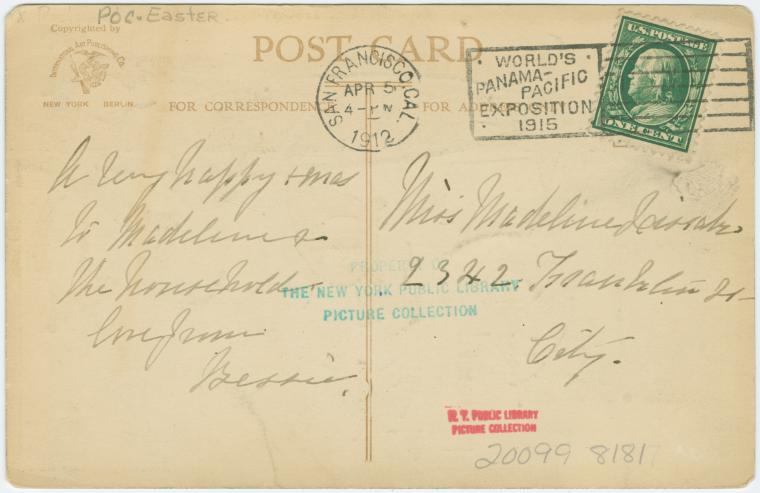 PC-Easter
Copyrighted by
INTERNATIONAL ART PUBLISHING CO.
NEW YORK BERLIN.
POST CARD
FOR CORRESPONDEN
FOR AD
SAN FRANCISCO, CAL.
APR 5
4-
1912
WORLD'S
PANAMA-
PACIFIC
EXPOSITION
1915
U.S. POSTAGE
ONE CENT
A very happy xmas
to Madeline &
the household
love from
Bessie.
Miss Madeline
2342 Franklin St
City.
PROPERTY OF
THE NEW YORK PUBLIC LIBRARY
PICTURE COLLECTION
N. Y. PUBLIC LIBRARY
PICTURE COLLECTION
20099 8181